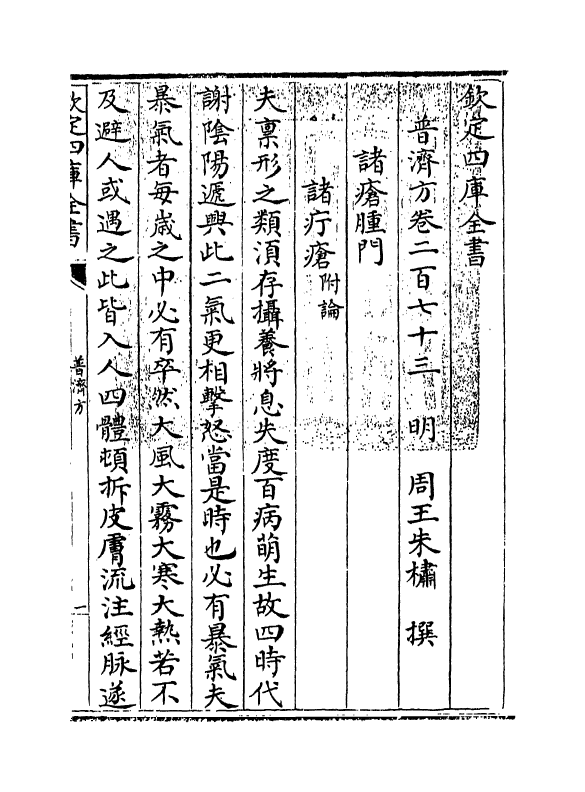 欽定四庫全書
普濟方卷二百七十三 明 周王朱橚 撰
諸瘡腫門
諸疔瘡附論
夫禀形之類須存攝養將息失度百病萌生故四時代
謝陰陽遞興此二氣更相擊怒當是時也必有暴氣夫
暴氣者每歲之中必有卒然大風大霧大寒大熱若不
及避人或遇之此皆入人四體頓拆皮膚流注經脉遂
欽定四庫全書
普濟方
一